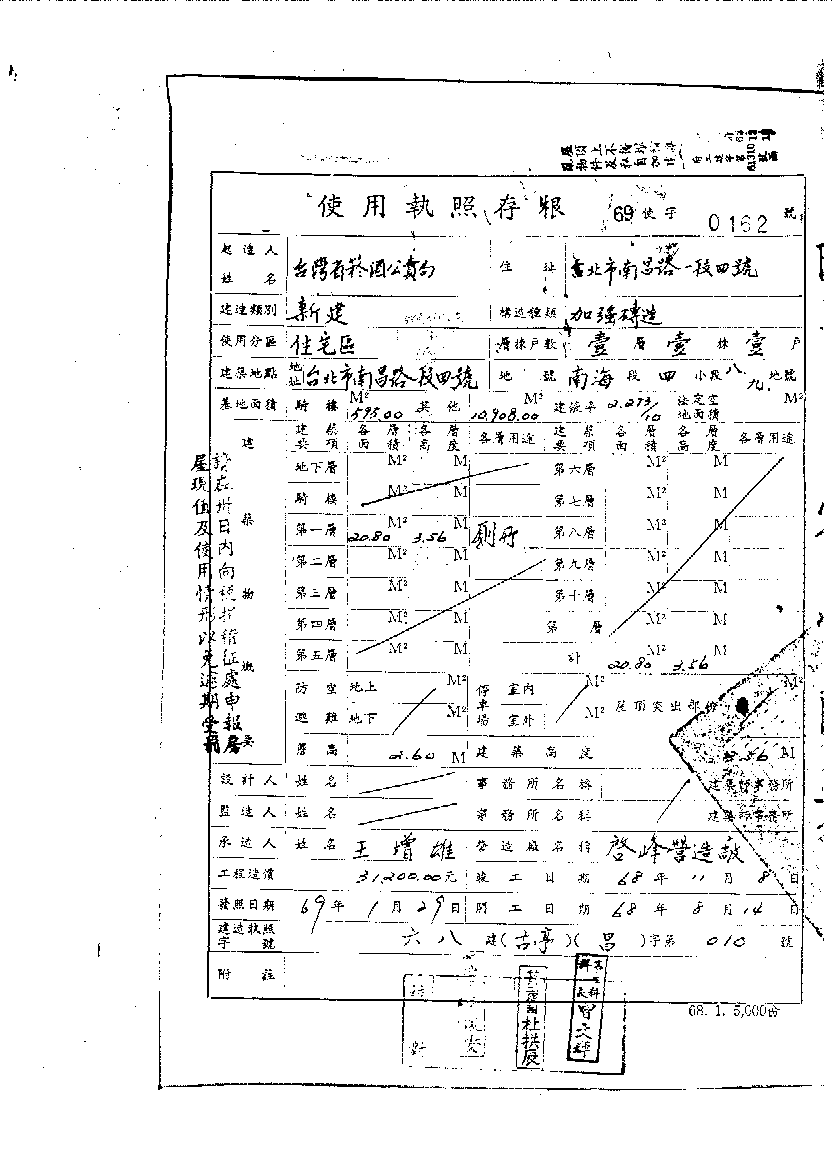 使用執照存根 69使字 0162 號
起造人姓名 台灣省菸酒公賣局 住址 臺北市南昌路一段四號
建造類別 新建 構造種類 加強磚造
使用分區 住宅區 層棟戶數 壹層壹棟壹戶
建築地點 地址 台北市南昌路一段四號 地號 南海段四小段八九地號
基地面積 騎樓 595.00 M² 其他 10,908.00 M² 建蔽率 2.273/10 法定空地面積 M²
建築物概要 建築要項 各層面積 各層高度 各層用途 建築要項 各層面積 各層高度 各層用途
地下層 M² M 第六層 M² M
騎樓 M² M 第七層 M² M
第一層 20.80 M² 3.56 M 廁所 第八層 M² M
第二層 M² M 第九層 M² M
第三層 M² M 第十層 M² M
第四層 M² M 第 層 M² M
第五層 M² M 計 20.80 M² 3.56 M
防空避難 地上 M² 停車場 室內 M² 屋頂突出部份 M²
地下 M² 室外 M²
簷高 2.60 M 建築高度 3.56 M
設計人 姓名 事務所名稱 建築師事務所
監造人 姓名 事務所名稱 建築師事務所
承造人 姓名 王增雄 營造廠名稱 啓峰營造廠
工程造價 31,200.00元 竣工日期 68年11月8日
發照日期 69年1月29日 開工日期 68年8月14日
建造執照字號 六八建(古亭)(昌)字第010號
附註
68. 1. 5,000份
請在卅日內向稅捐稽征處申報
屋現值及使用情形以免逾期受
校對
杜拱辰